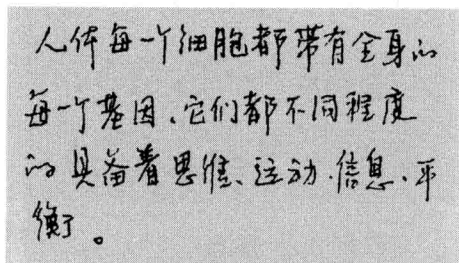 人体每一个细胞都带有全身的
每一个基因、它们都不同程度
的具备着思维、运动、信息、平
衡。